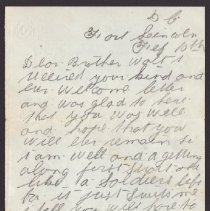 D. C.
Fort Lincoln
Dear Brother Walt I
received your kind and
ever welcome letter
and was glad to hear
that you was well
and hope that you
will ever remain so
I am well and a getting
along first rate
like a Soldiers life
it is just suits me
tell you will have to